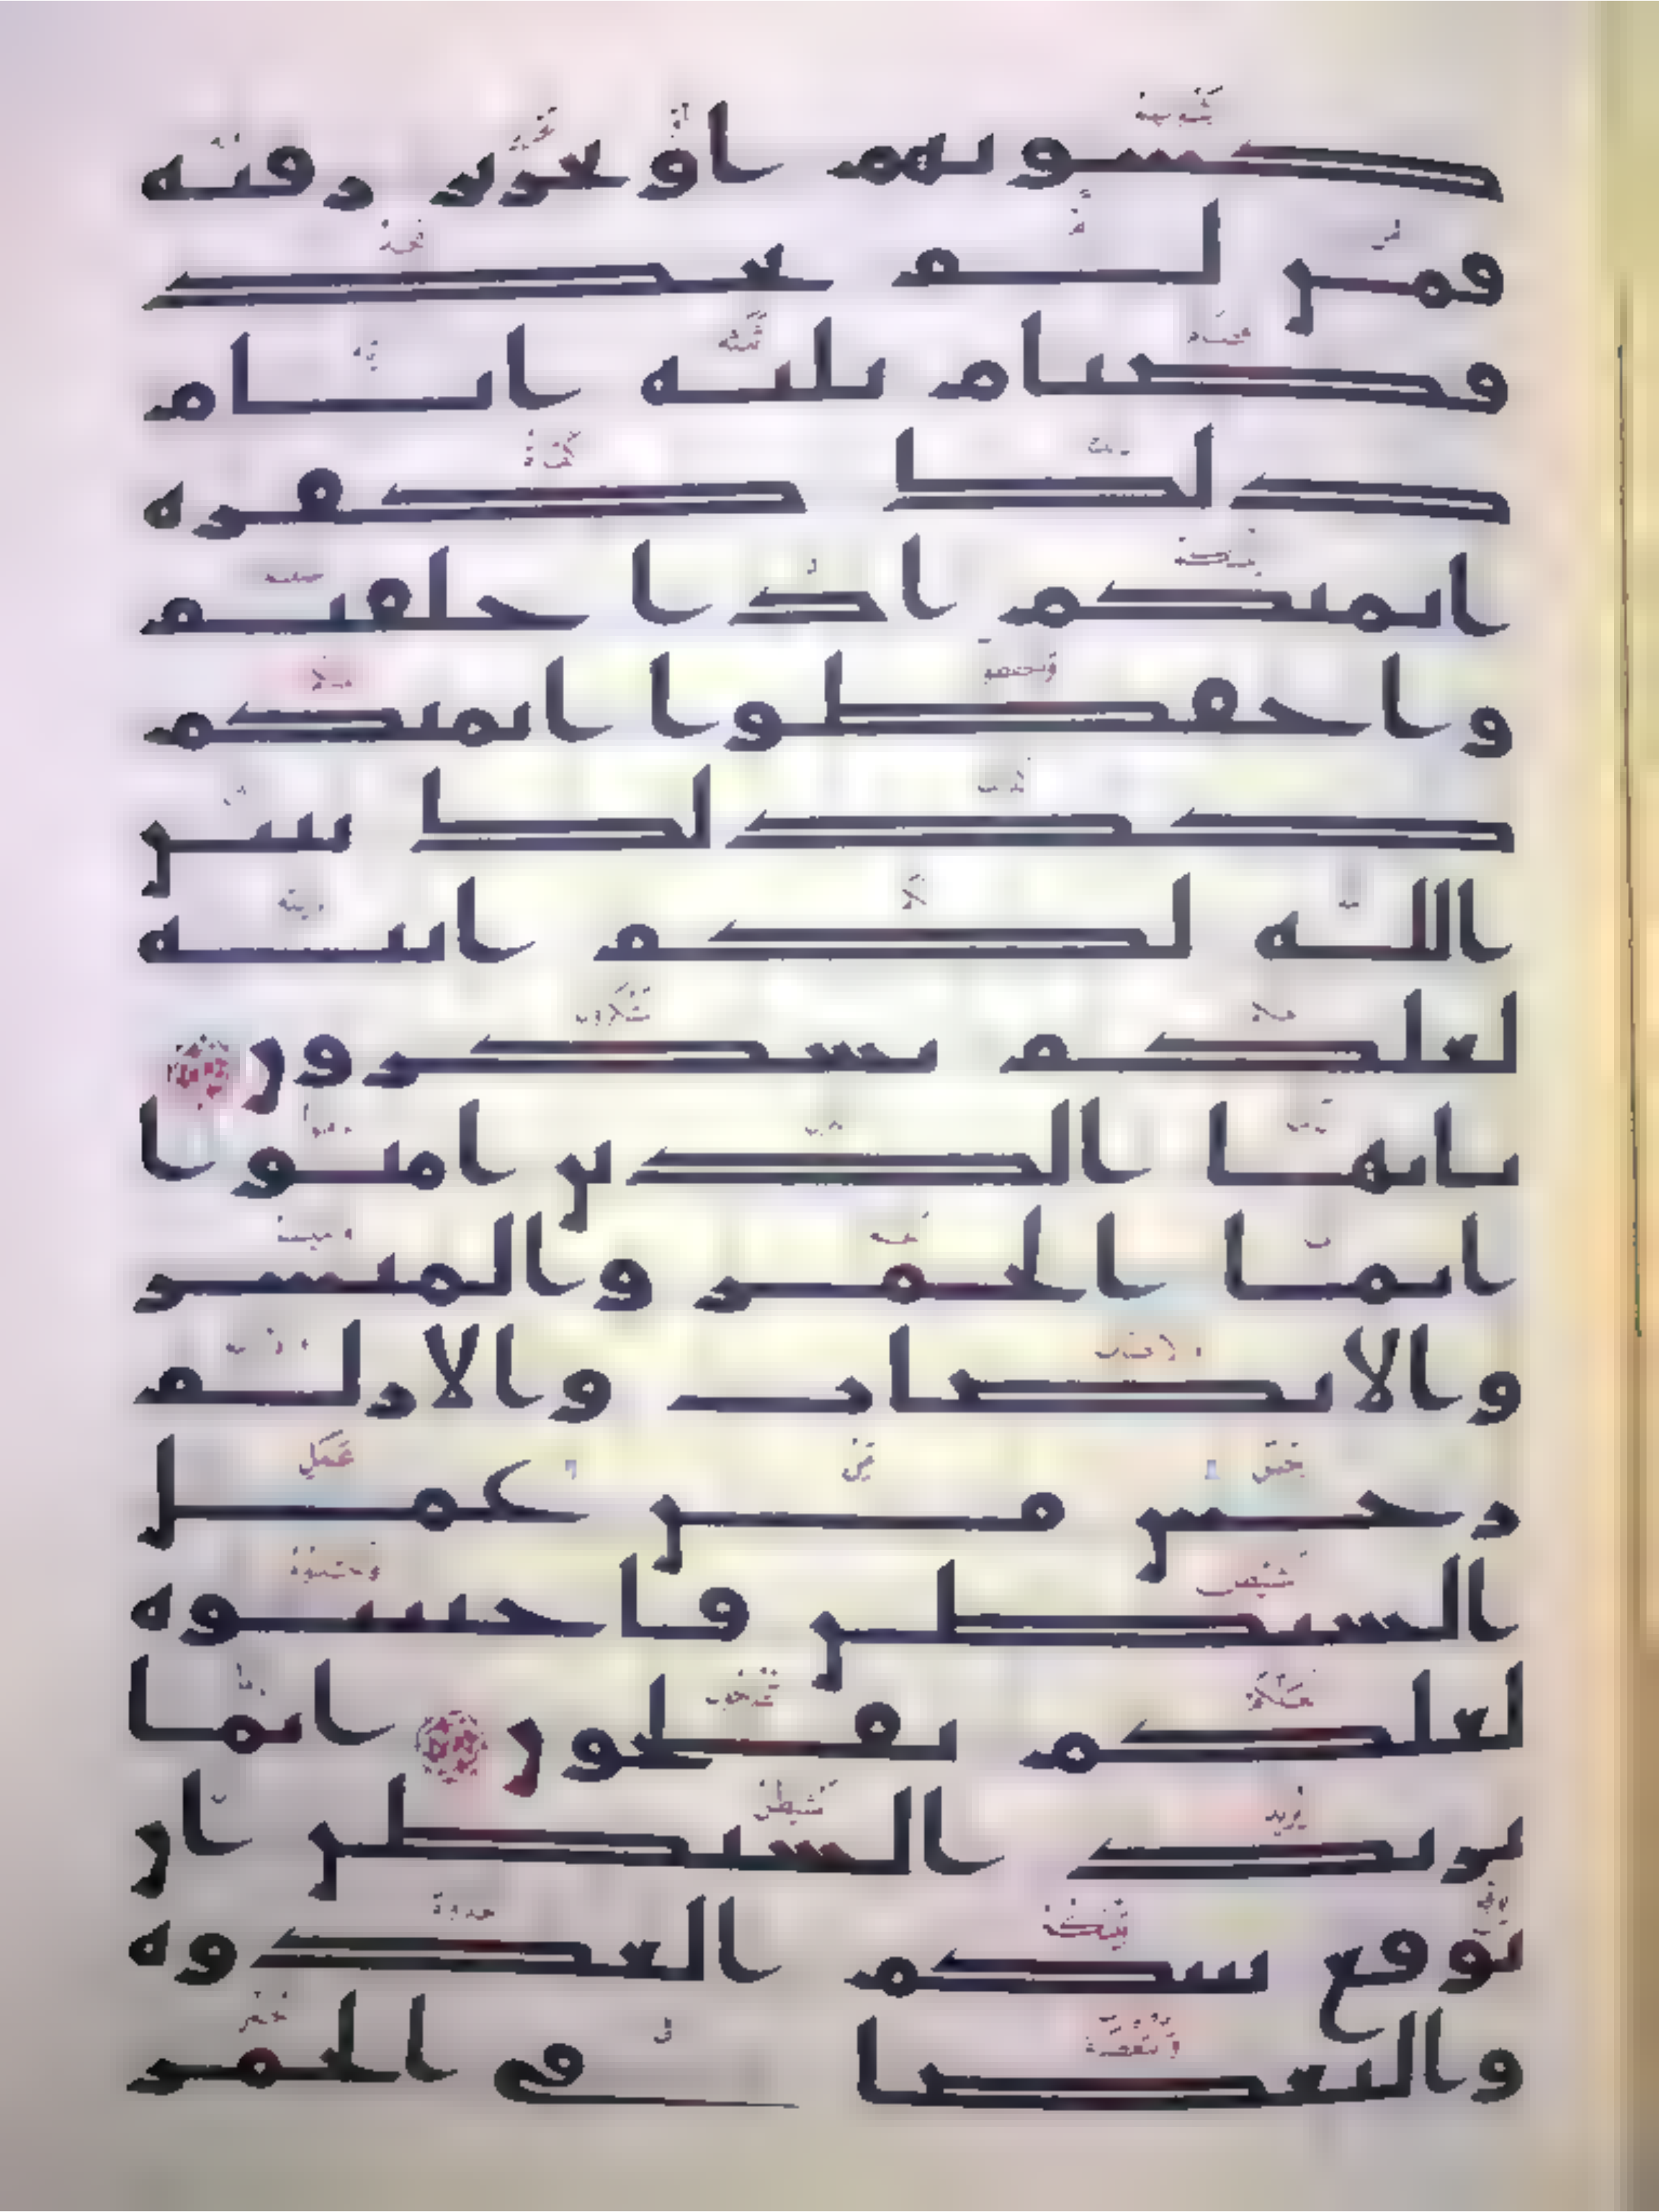 كسوتهم او تحرير رقبة
فمن لم يجد
فصيام ثلثة ايام
ذلك كفرة
ايمنكم اذا حلفتم
واحفظوا ايمنكم
كذلك يبين
الله لكم ايته
لعلكم تشكرون
يايها الذين امنوا
انما الخمر والميسر
والانصاب والازلم
رجس من عمل
الشيطن فاجتنبوه
لعلكم تفلحون انما
يريد الشيطن ان
يوقع بينكم العدوة
والبغضا في الخمر